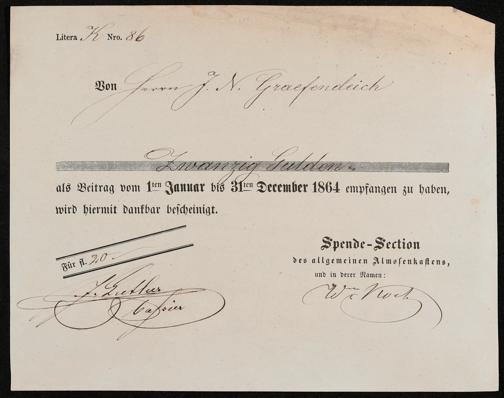 Litera K Nro. 86
Von Herrn J. N. Graefendeich
Zwanzig Gulden
als Beitrag vom 1ten Januar bis 31ten December 1864 empfangen zu haben,
wird hiermit dankbar bescheinigt.
Für fl. 20
Spende-Section
des allgemeinen Almosenkastens,
und in derer Namen:
Cassier
Wm Koch